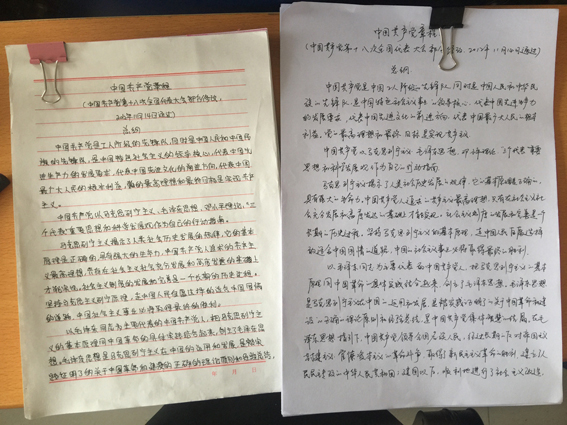 中国共产党章程
(中国共产党第十八次全国代表大会部分修改,
2012年11月14日通过)
总纲
中国共产党是工人阶级的先锋队,同时是中国人民和中华民
族的先锋队,是中国特色社会主义的领导核心,代表中国先
进生产力的发展要求,代表中国先进文化的前进方向,代表中国
最广大人民的根本利益。党的最高理想和最终目标是实现共产
主义。
中国共产党以马克思列宁主义、毛泽东思想、邓小平理论、“三
个代表”重要思想和科学发展观作为自己的行动指南。
马克思列宁主义揭示了人类社会历史发展的规律,它的基本
原理是正确的,具有强大的生命力。中国共产党人追求的共产主
义最高理想,只有在社会主义社会充分发展和高度发达的基础上
才能实现。社会主义制度的发展和完善是一个长期的历史过程。
坚持马克思列宁主义的基本原理,走中国人民自愿选择的适合中国国情
的道路,中国的社会主义事业必将取得最终的胜利。
以毛泽东同志为主要代表的中国共产党人,把马克思列宁主
义的基本原理同中国革命的具体实践结合起来,创立了毛泽东思
想。毛泽东思想是马克思列宁主义在中国的运用和发展,是被实践
证明了的关于中国革命和建设的正确的理论原则和经验总结,
年 月 日
中国共产党章程
(中国共产党第十八次全国代表大会部分修改,2012年11月14日通过)
总纲
中国共产党是中国工人阶级的先锋队,同时是中国人民和中华民
族的先锋队,是中国特色社会主义事业的领导核心,代表中国先进生产力
的发展要求,代表中国先进文化的前进方向,代表中国最广大人民的根本
利益。党的最高理想和最终目标是实现共产主义。
中国共产党以马克思列宁主义、毛泽东思想、邓小平理论、“三个代表”重要
思想和科学发展观作为自己的行动指南。
马克思列宁主义揭示了人类社会历史发展的规律,它的基本原理是正确的,
具有强大的生命力。中国共产党人追求的共产主义最高理想,只有在社会主义社
会充分发展和高度发达的基础上才能实现。社会主义制度的发展和完善是一个
长期的历史过程。坚持马克思列宁主义的基本原理,走中国人民自愿选择
的适合中国国情的道路,中国的社会主义事业必将取得最终的胜利。
以毛泽东同志为主要代表的中国共产党人,把马克思列宁主义的基本
原理同中国革命的具体实践结合起来,创立了毛泽东思想。毛泽东思想
是马克思列宁主义在中国的运用和发展,是被实践证明了的关于中国革命和建
设的正确的理论原则和经验总结,是中国共产党集体智慧的结晶。在毛
泽东思想指引下,中国共产党领导全国各族人民,经过长期的反对帝国主义、
封建主义、官僚资本主义的革命斗争,取得了新民主主义革命的胜利,建立了人
民民主专政的中华人民共和国;建国以后,顺利地进行了社会主义改造,